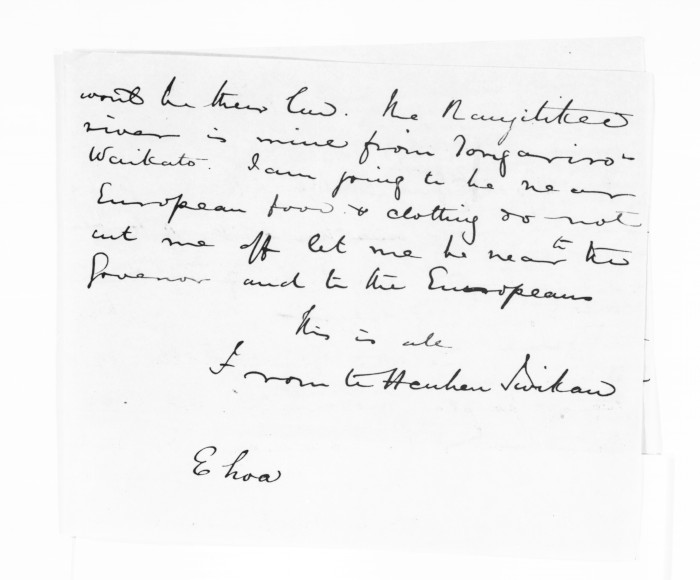 wont be their law. The Rangitikei
river is mine from Tongariro &
Waikato. I am going to be near
European food & clothing do not
cut me off let me be near to the
Govenor and to the Europeans
This is all
From te Heuheu Iwikau
E hoa